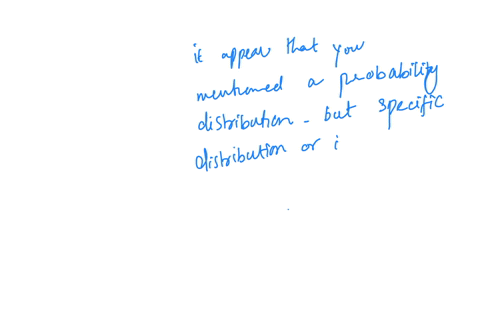 it appear that you
mentioned a probability
distribution - but specific
distribution or i